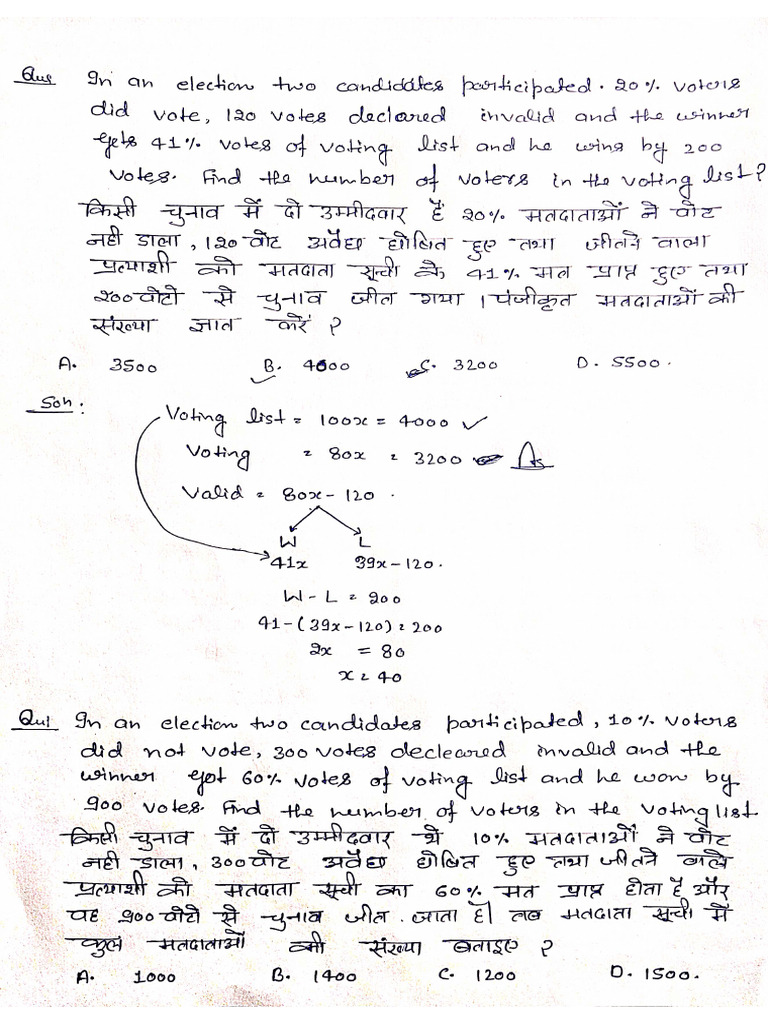 Que In an election two candidates participated. 20% voters
did vote, 120 votes declared invalid and the winner
gets 41% votes of voting list and he wins by 200
votes. Find the number of voters in the voting list?
किसी चुनाव में दो उम्मीदवार हैं 20% मतदाताओं ने वोट
नही डाला, 120 वोट अवैध घोषित हुए तथा जीतने वाला
प्रत्याशी को मतदाता सूची के 41% मत प्राप्त हुए तथा
200 वोटो से चुनाव जीत गया। पंजीकृत मतदाताओं की
संख्या ज्ञात करें ?
A. 3500 B. 4000 C. 3200 D. 5500.
Soln:
Voting list = 100x = 4000 ✓
Voting = 80x = 3200 As
Valid = 80x - 120.
W L
41x 39x - 120.
W - L = 200
41 - (39x - 120) = 200
2x = 80
x = 40
Que In an election two candidates participated, 10% voters
did not vote, 300 votes decleared invalid and the
winner got 60% votes of voting list and he won by
900 votes. Find the number of voters in the voting list.
किसी चुनाव में दो उम्मीदवार थे 10% मतदाताओं ने वोट
नही डाला, 300 वोट अवैध घोषित हुए तथा जीतने वाले
प्रत्याशी को मतदाता सूची का 60% मत प्राप्त होता है और
वह 900 वोटो से चुनाव जीत जाता है। तब मतदाता सूची में
कुल मतदाताओं की संख्या बताइए ?
A. 1000 B. 1400 C. 1200 D. 1500.